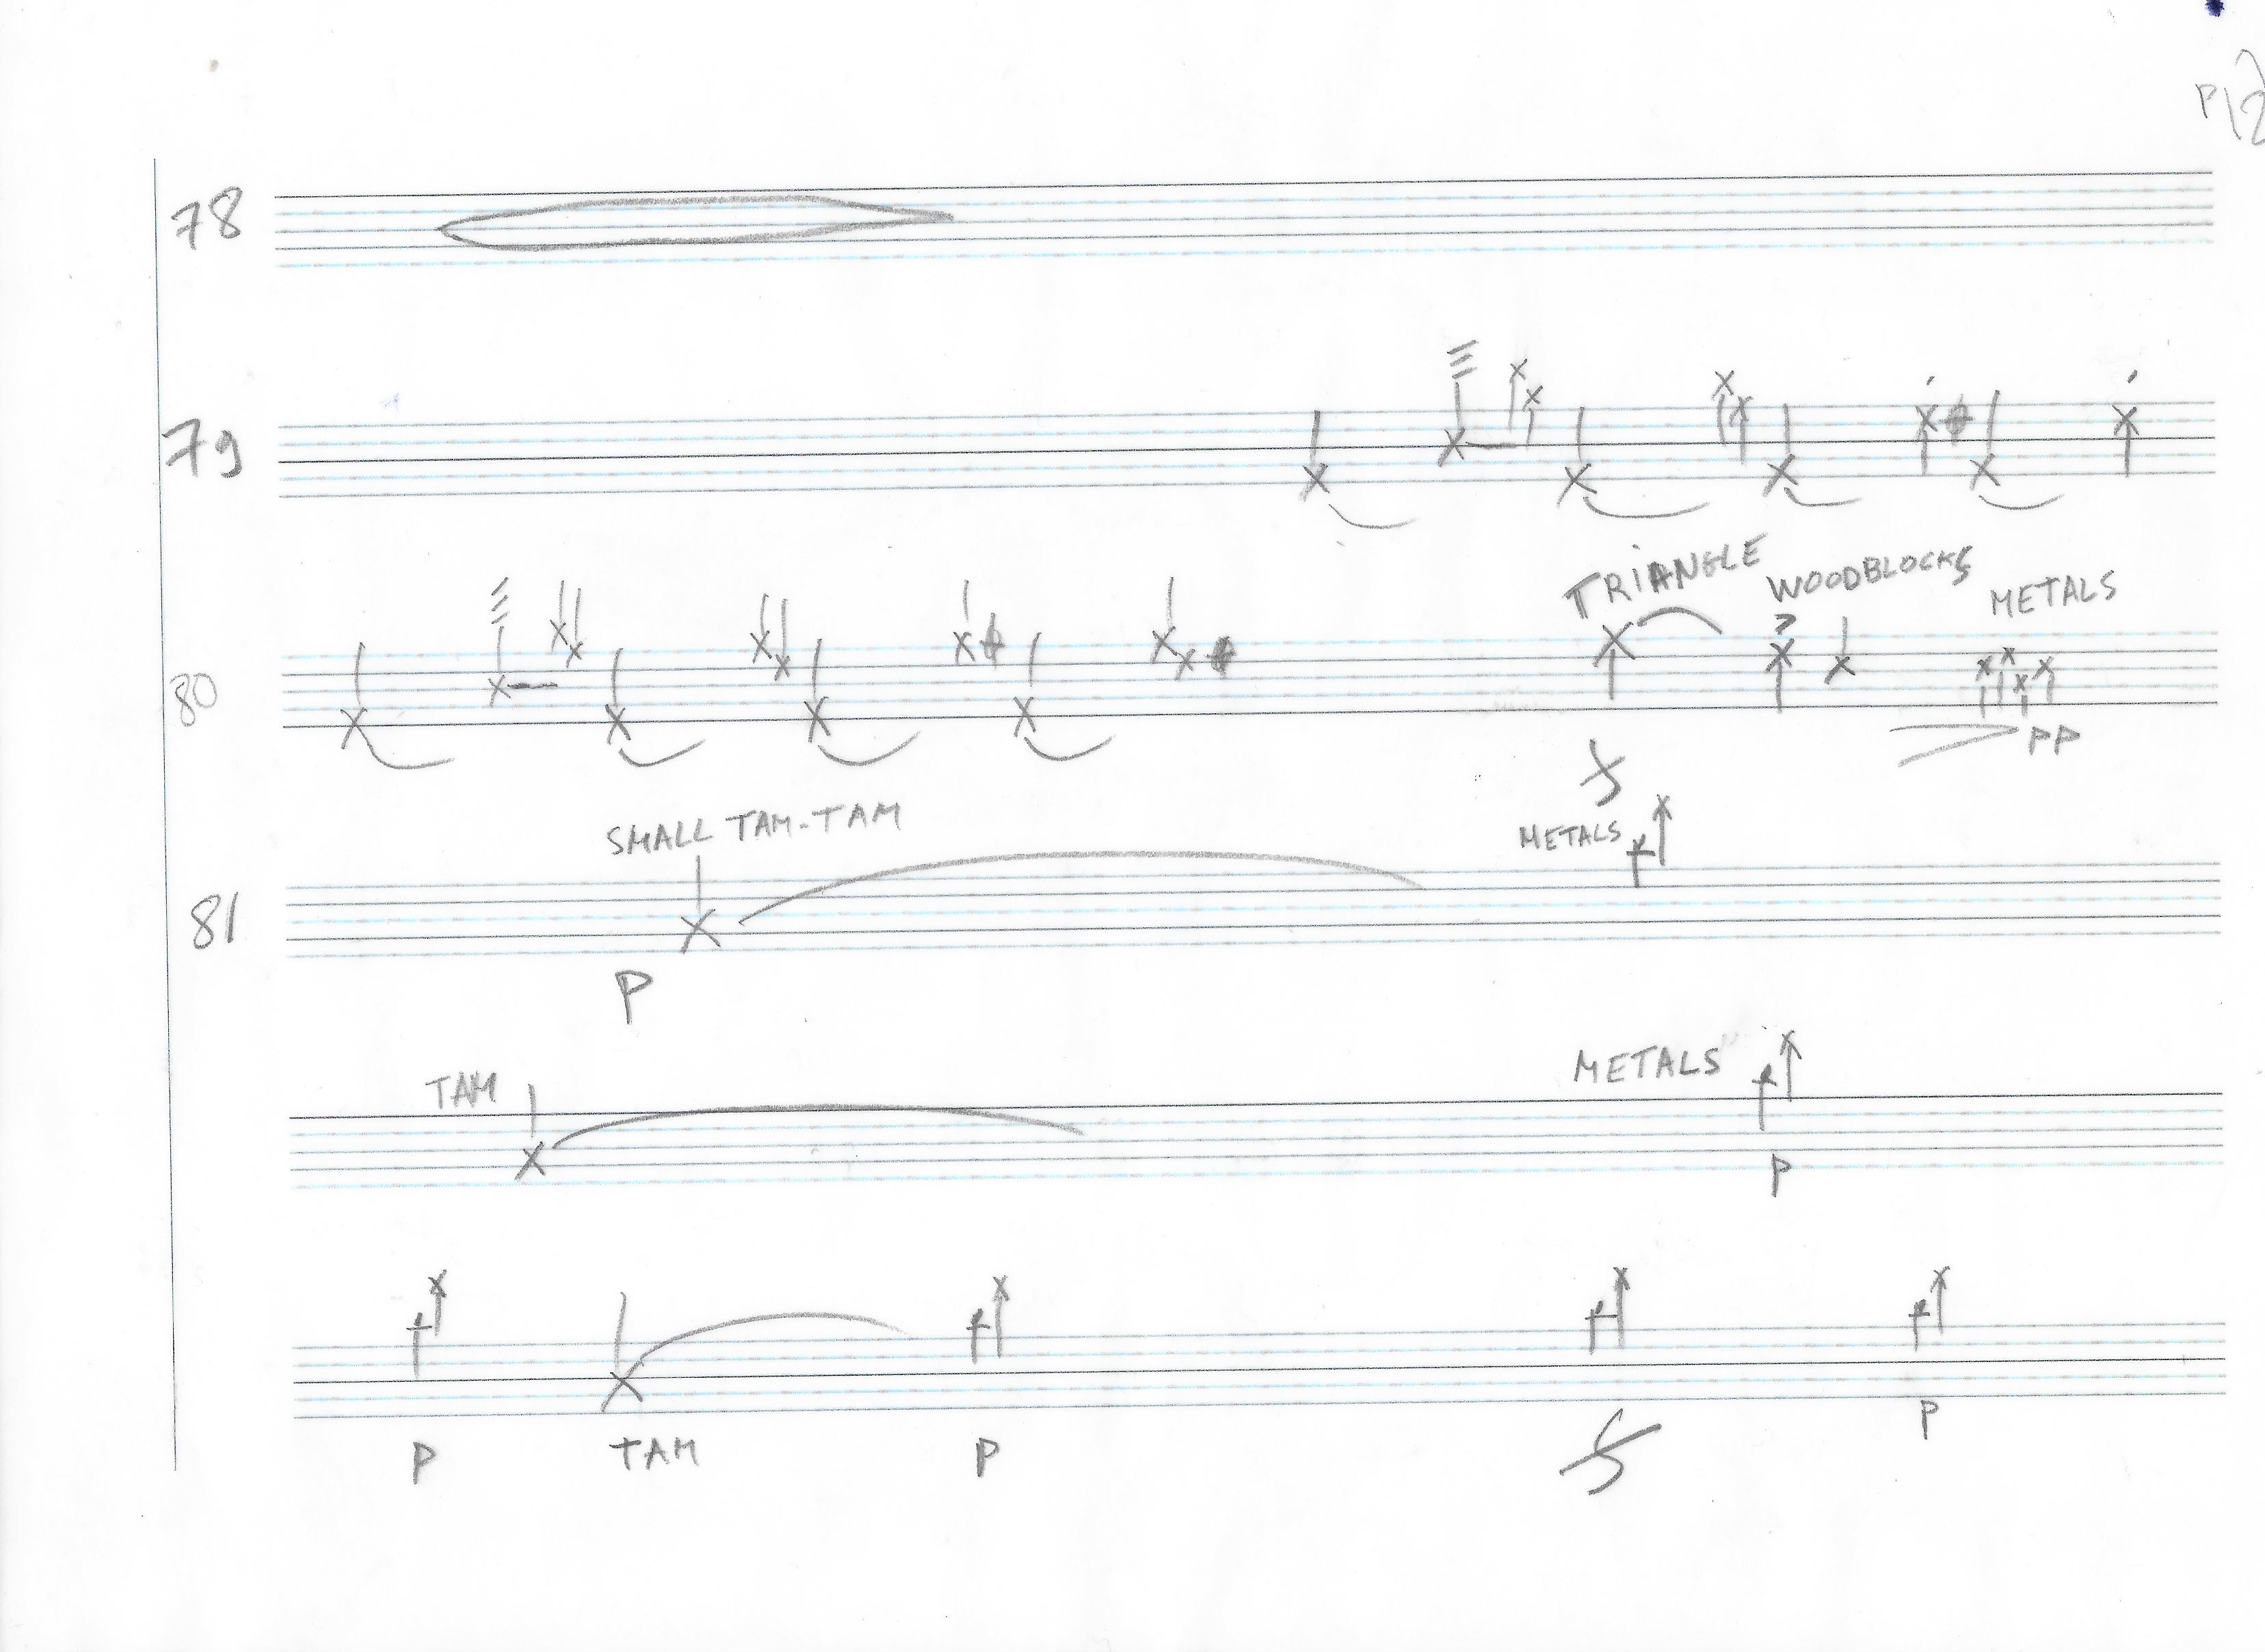 P12
78
79
TRIANGLE WOODBLOCKS METALS
80
f PP
SMALL TAM-TAM METALS
81
P
TAM METALS
P
P TAM P f P